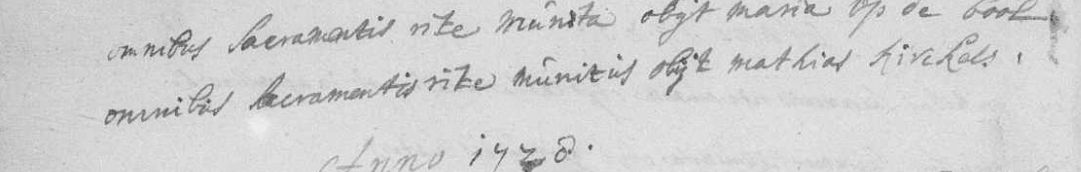 omnibus sacramentis rite munita obijt maria op de boot
omnibus sacramentis rite munitus obijt mathias kirckels.
Anno 1728.